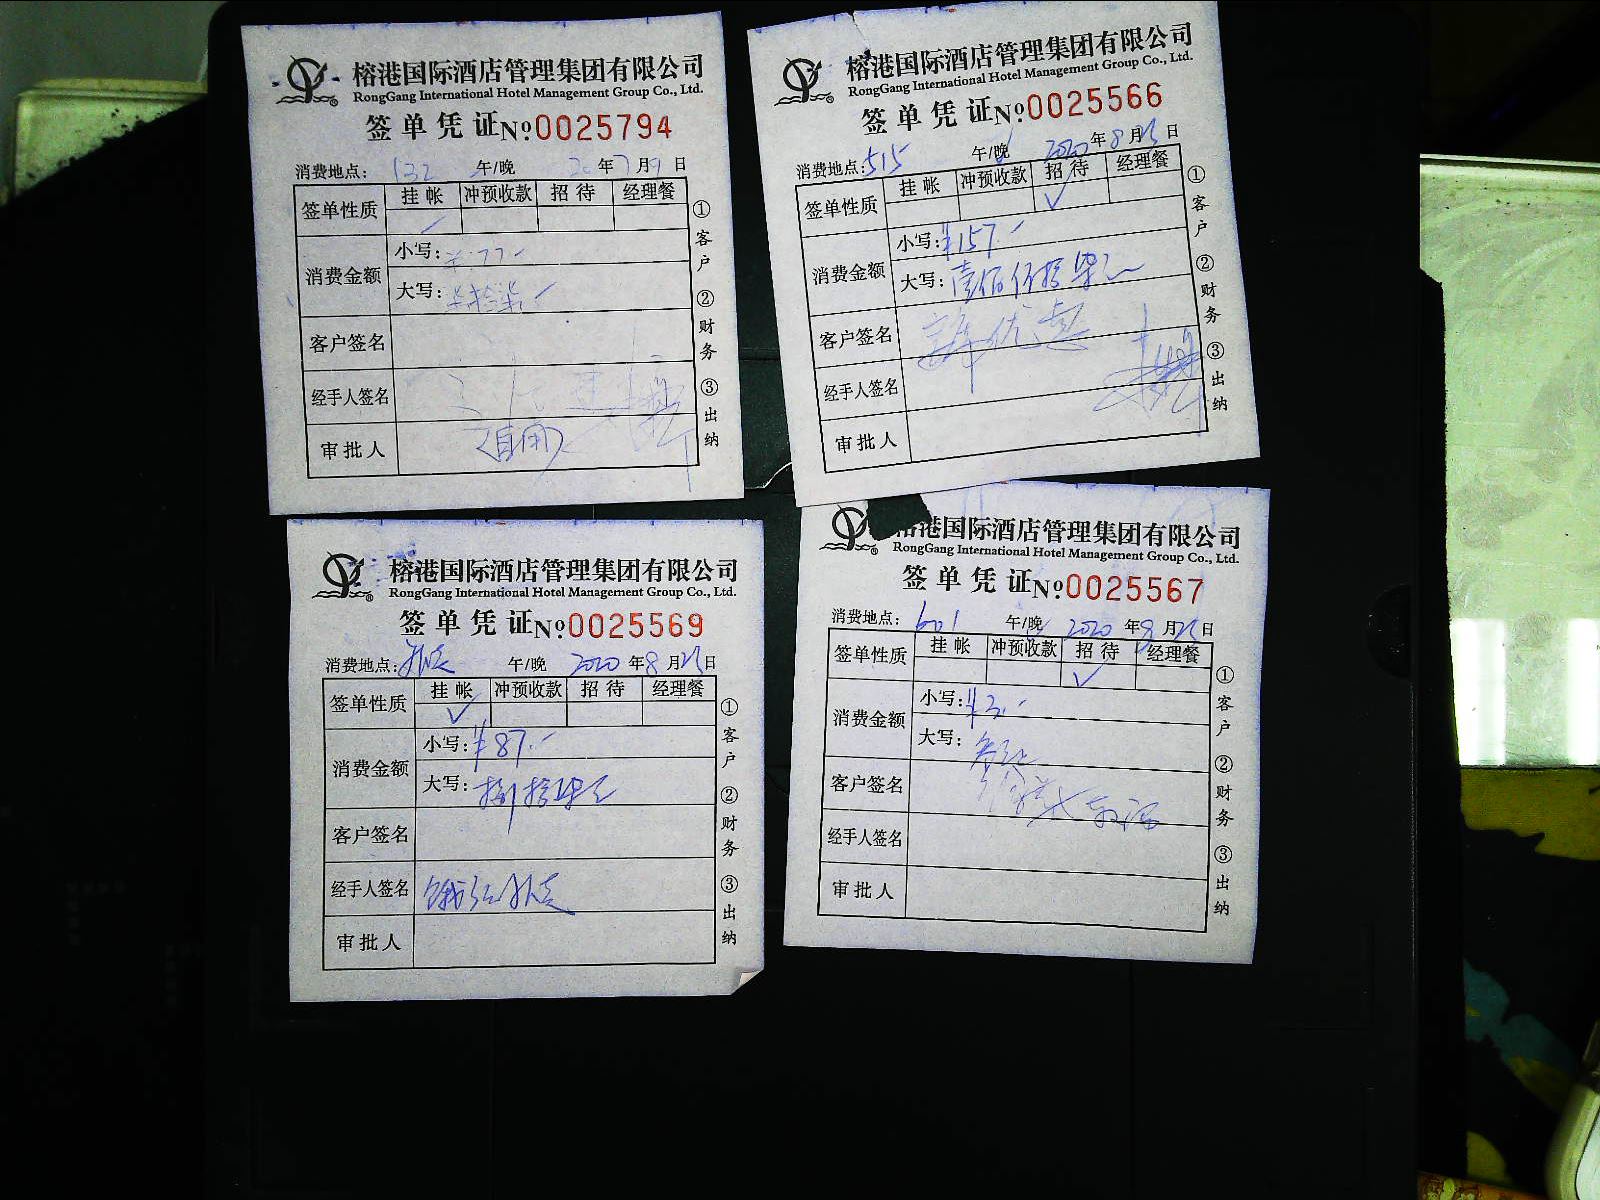 榕港国际酒店管理集团有限公司
RongGang International Hotel Management Group Co., Ltd.
签单凭证 №0025794
消费地点: 132 午/晚 20年7月9日
签单性质 挂帐 冲预收款 招待 经理餐
消费金额 小写: ¥77.-
大写: 柒拾柒
客户签名
经手人签名
审批人 (自用)
①客户 ②财务 ③出纳
榕港国际酒店管理集团有限公司
RongGang International Hotel Management Group Co., Ltd.
签单凭证 №0025566
消费地点: 515 午/晚 2020年8月 日
签单性质 挂帐 冲预收款 招待 经理餐
✓
消费金额 小写: ¥157.-
大写: 壹佰伍拾柒元
客户签名
经手人签名
审批人
①客户 ②财务 ③出纳
榕港国际酒店管理集团有限公司
RongGang International Hotel Management Group Co., Ltd.
签单凭证 №0025569
消费地点: 午/晚 2020年8月 日
签单性质 挂帐 冲预收款 招待 经理餐
✓
消费金额 小写: ¥87.-
大写: 捌拾柒元
客户签名
经手人签名
审批人
①客户 ②财务 ③出纳
榕港国际酒店管理集团有限公司
RongGang International Hotel Management Group Co., Ltd.
签单凭证 №0025567
消费地点: 601 午/晚 2020年8月 日
签单性质 挂帐 冲预收款 招待 经理餐
✓
消费金额 小写: ¥3.-
大写: 叁元
客户签名
经手人签名
审批人
①客户 ②财务 ③出纳